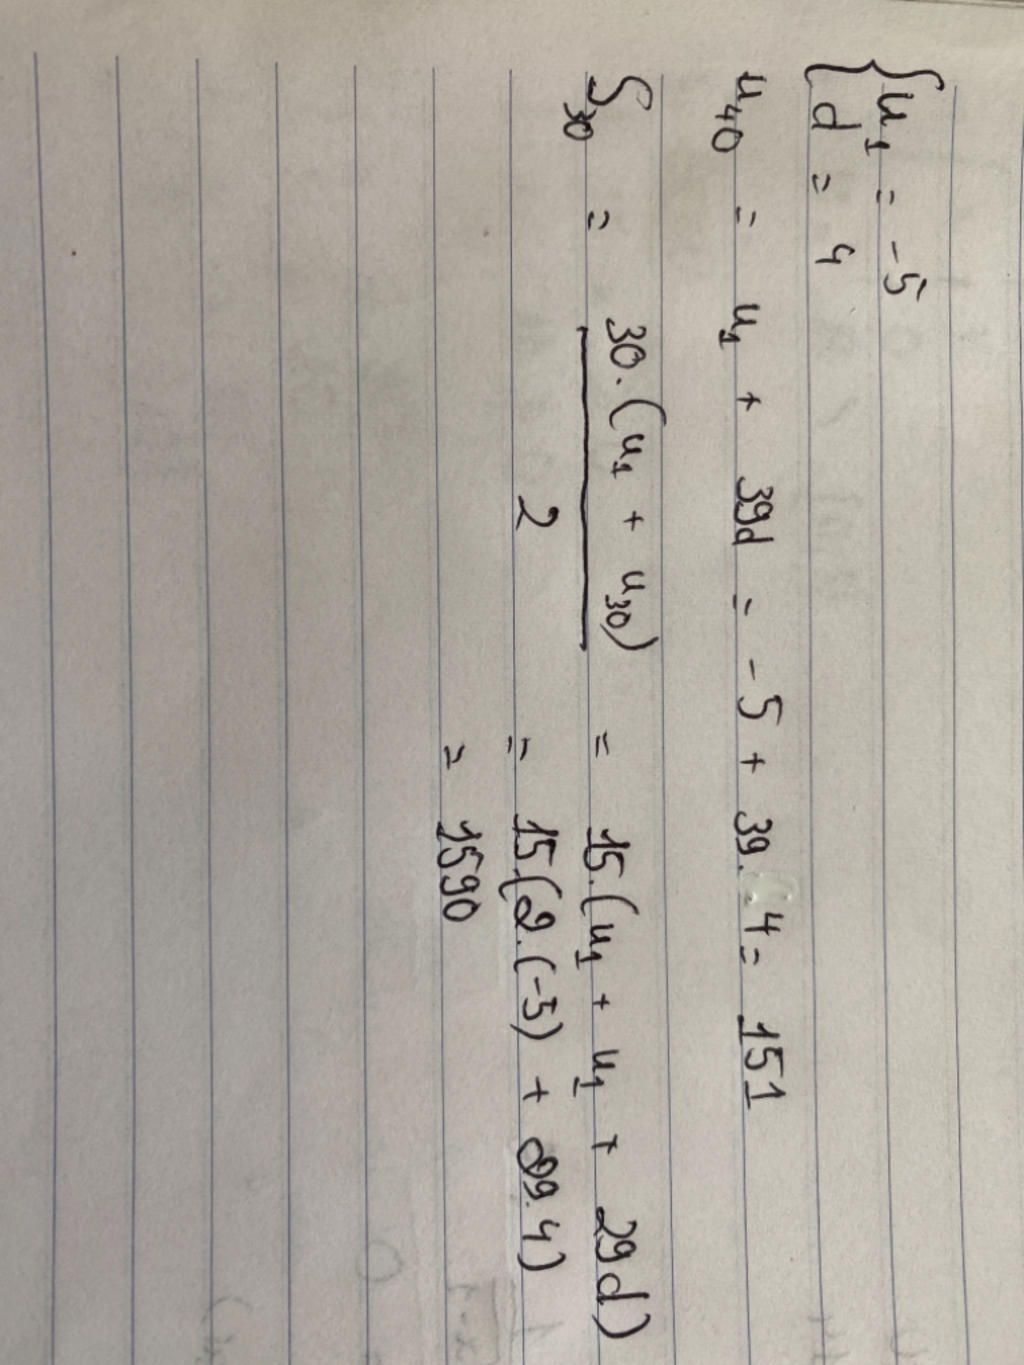 { u₁ = -5
{ d = 4
u₄₀ = u₁ + 39d = -5 + 39. 4 = 151
S₃₀ = 30.(u₁ + u₃₀) / 2 = 15.(u₁ + u₁ + 29d)
= 15.(2.(-5) + 29.4)
= 1590